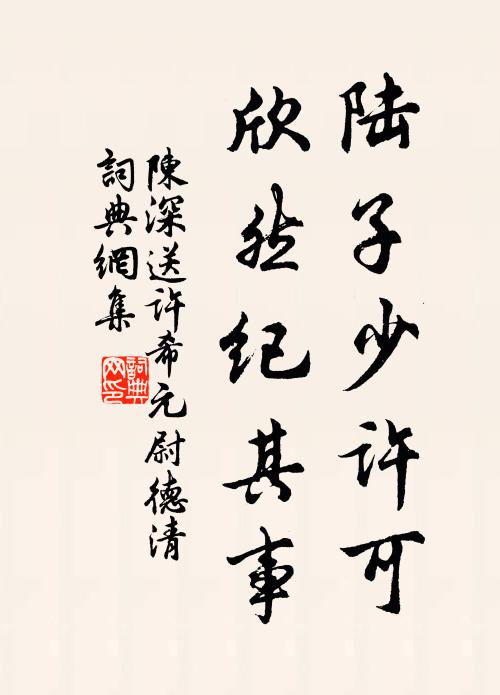 陆子少许可
欣然纪其事
陳深送許希元尉德清
詞典網集
詞典網印